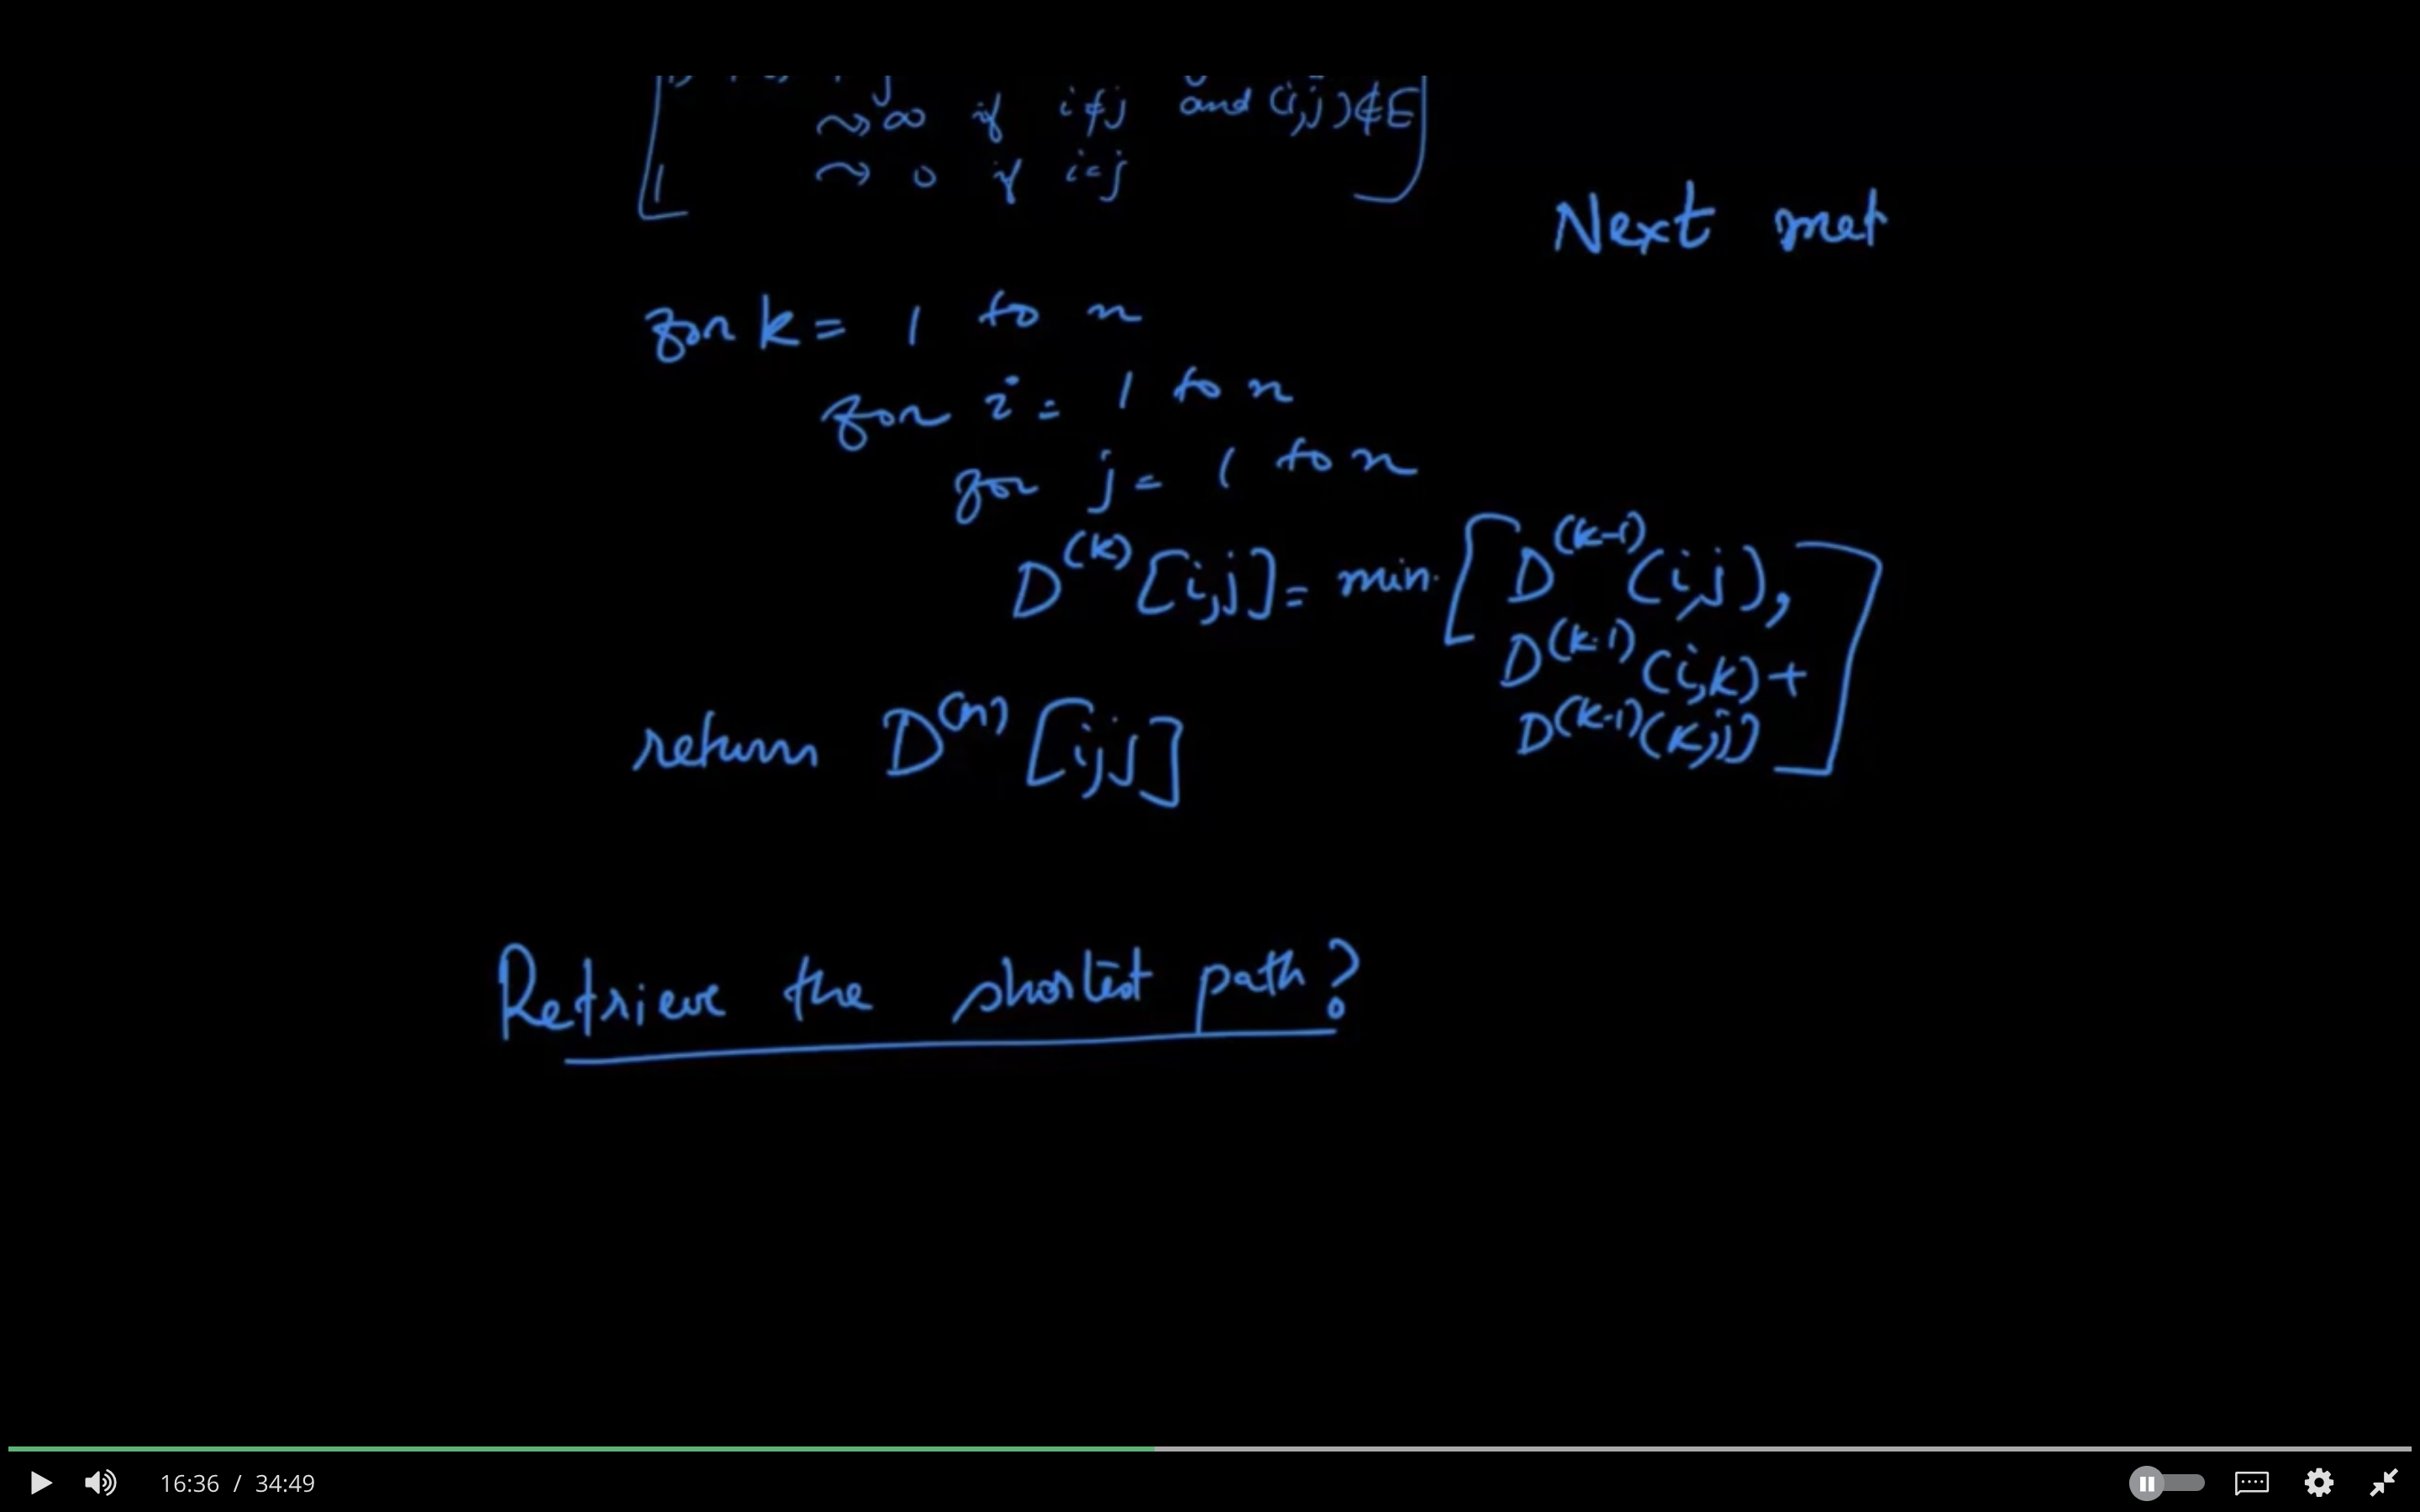 ∞ if i≠j and (i,j)∉E
0 if i=j
Next met
for k = 1 to n
for i = 1 to n
for j = 1 to n
D^(k) [i,j] = min. [D^(k-1)(i,j),
D^(k-1)(i,k) +
D^(k-1)(k,j)]
return D^(n) [i,j]
Retrieve the shortest path?
16:36 / 34:49